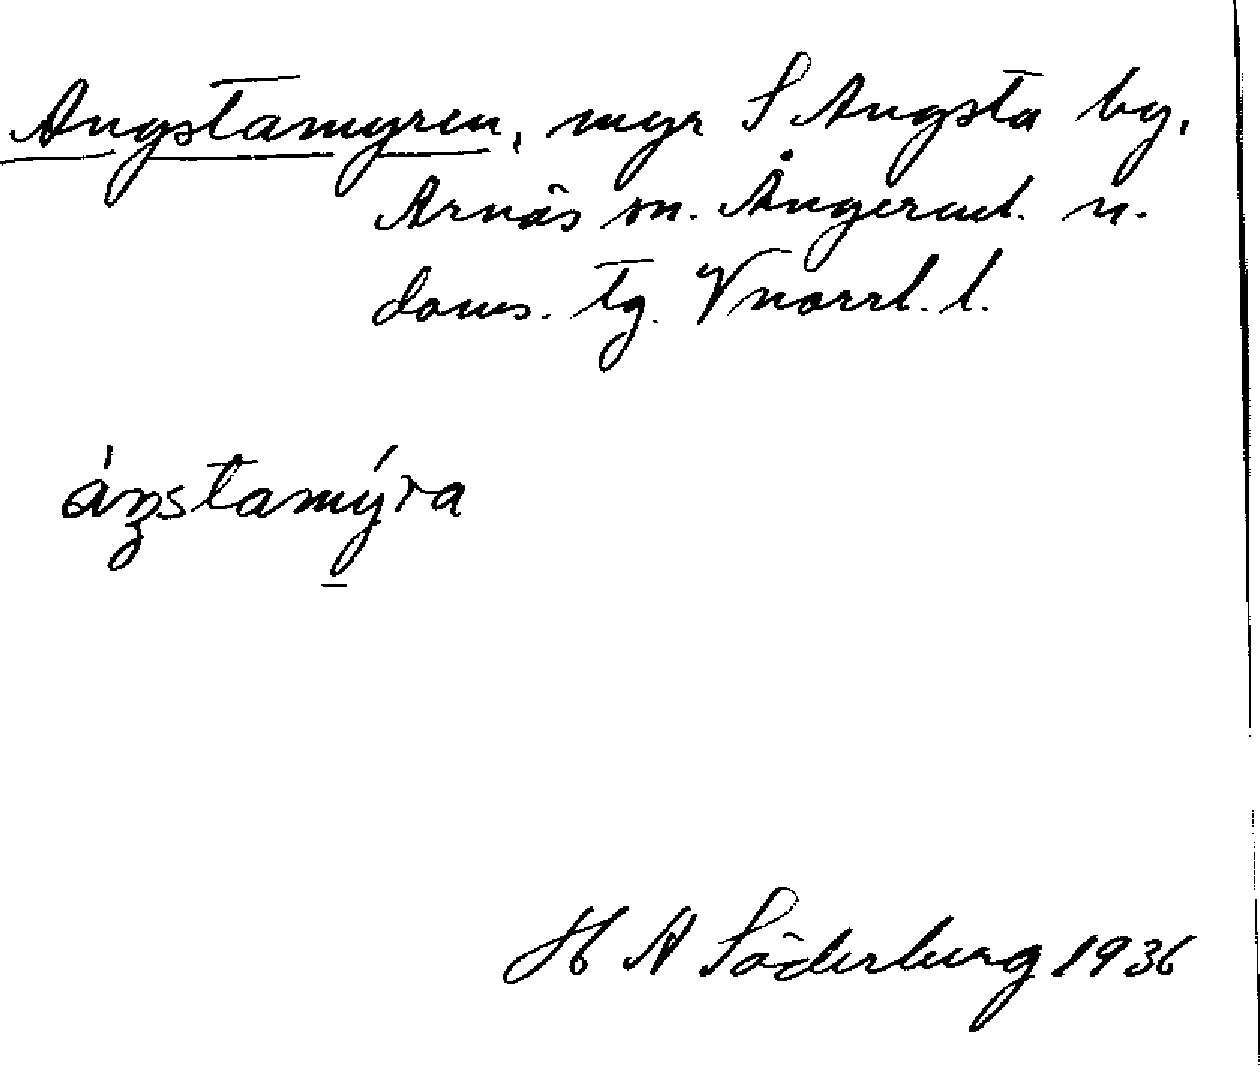 Angstamyren, myr S Angsta by,
Arnäs sn. Ångerml. n.
doms. tg. Vnorrl. l.
áŋstamýra
H A Söderberg 1936